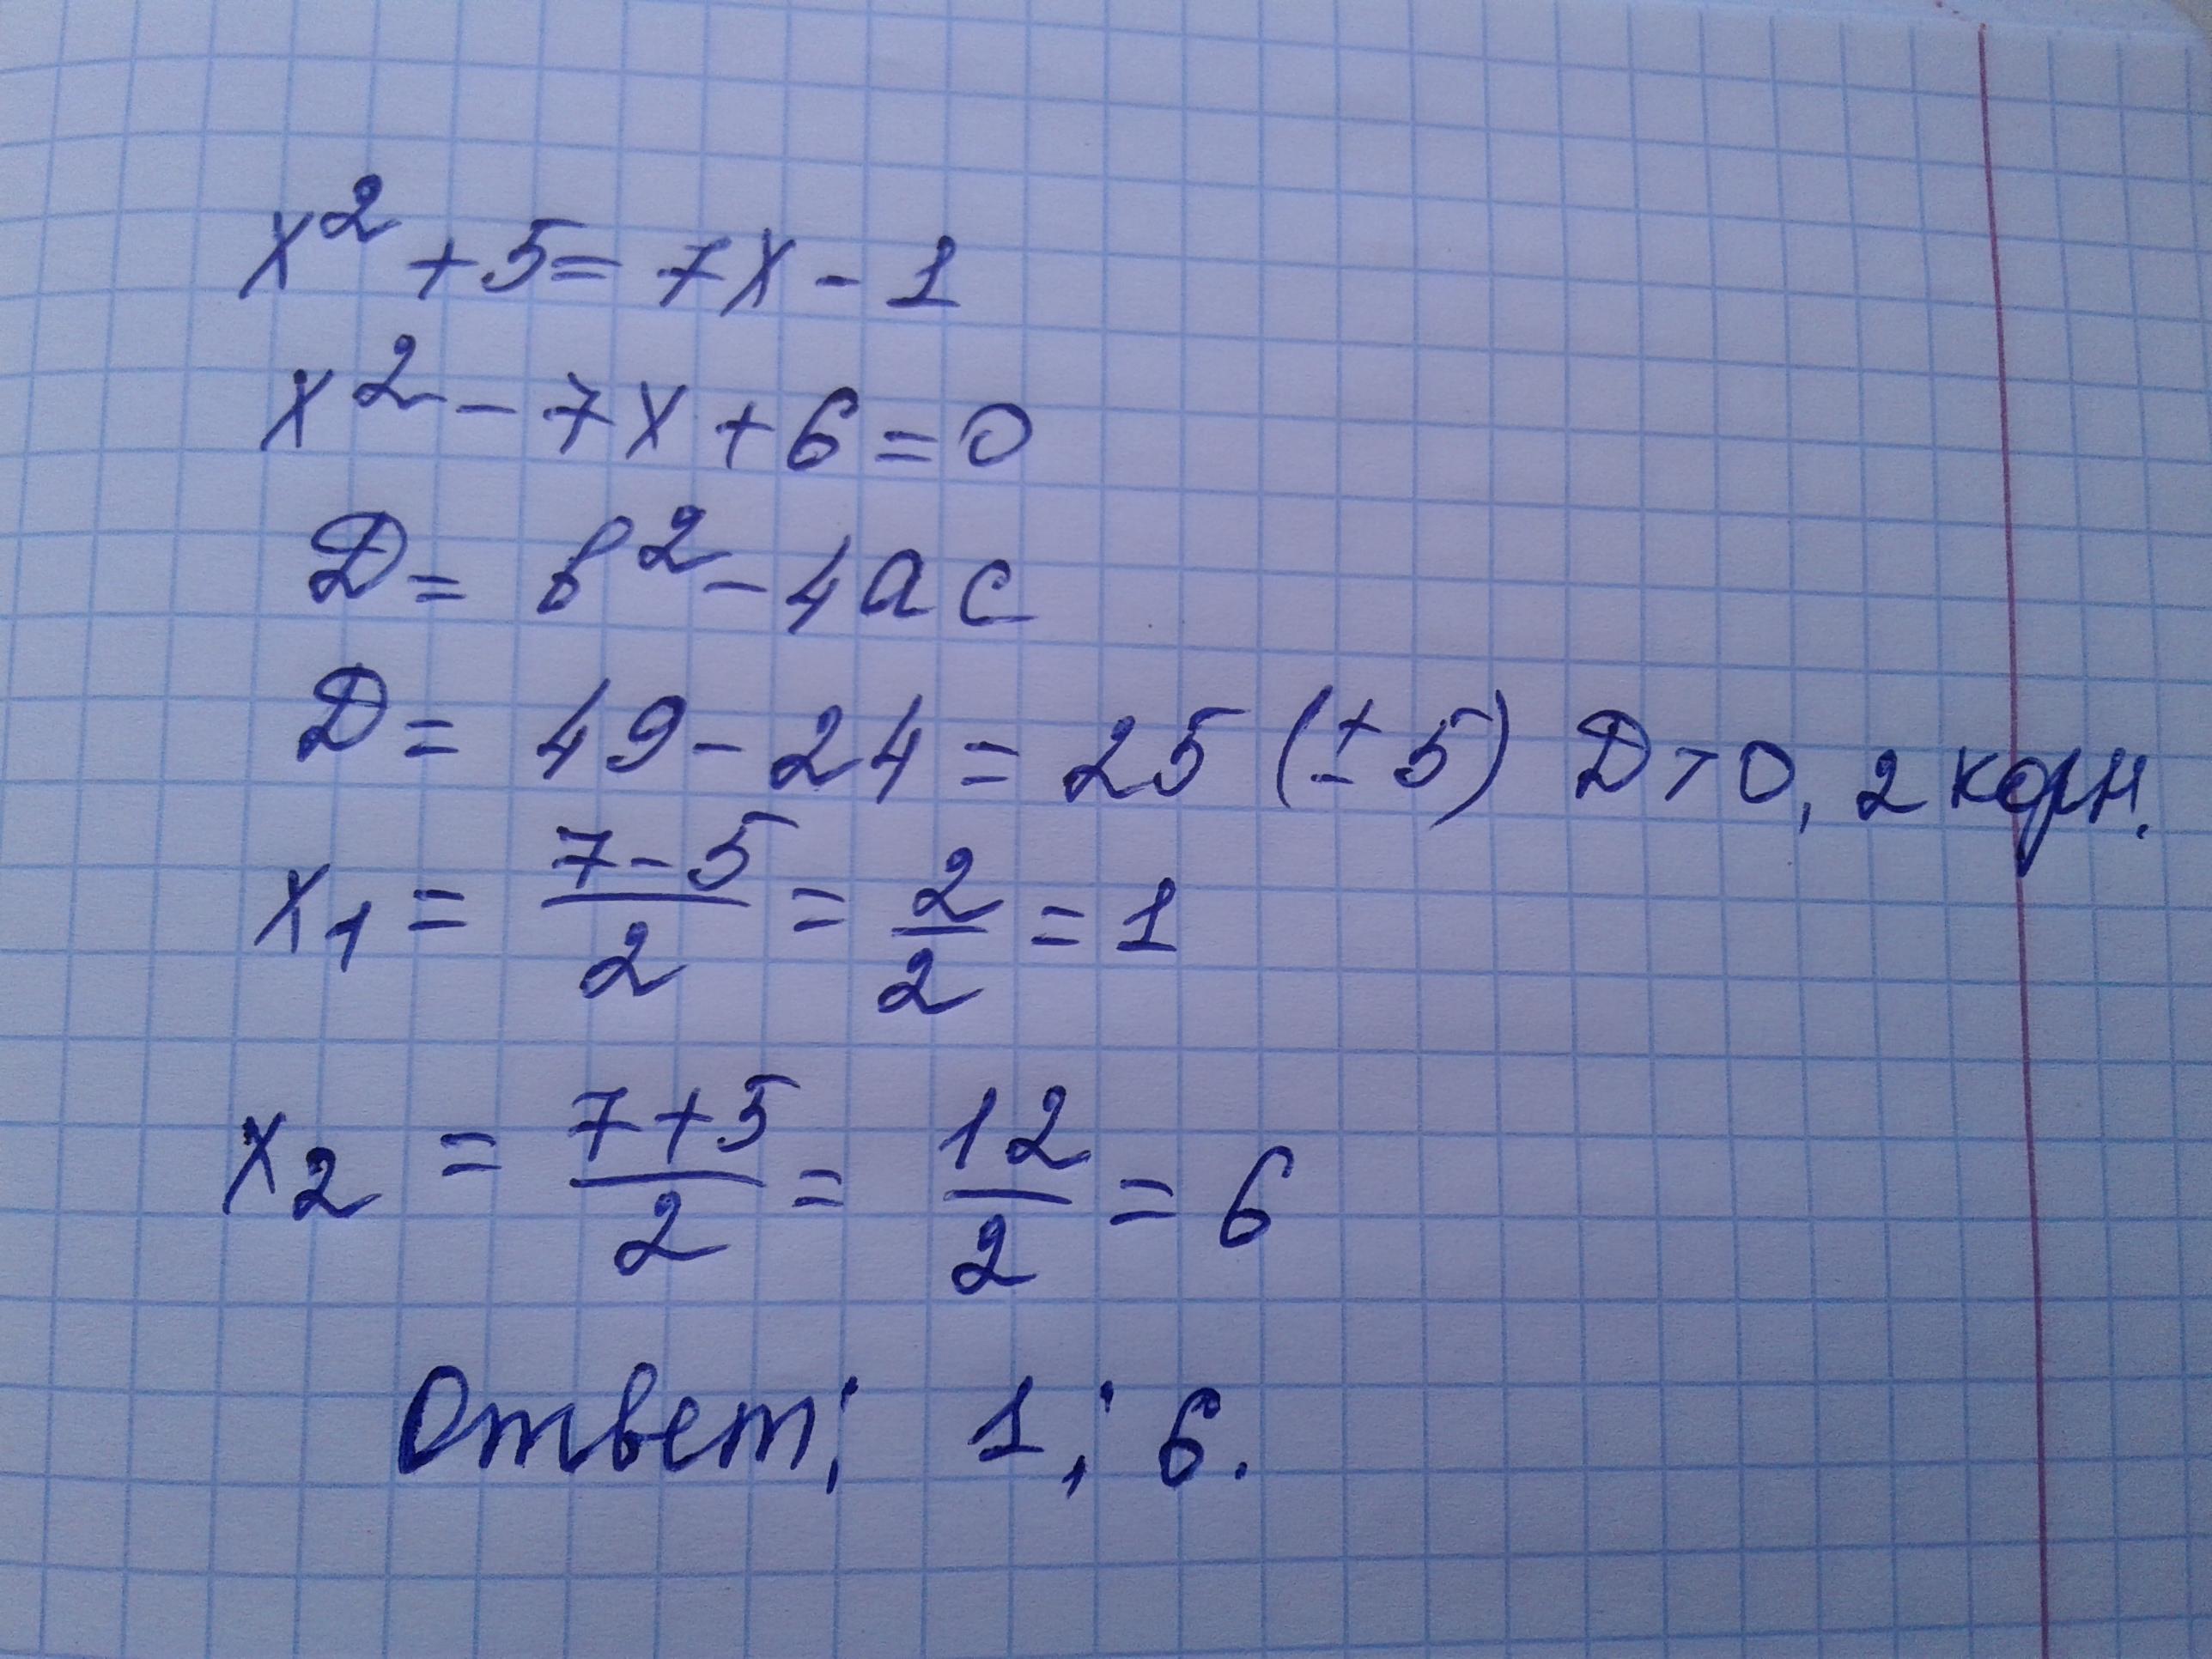 x² + 5 = 7x - 1
x² - 7x + 6 = 0
D = в² - 4ac
D = 49 - 24 = 25 (± 5) D > 0, 2 корн.
x₁ = (7-5)/2 = 2/2 = 1
x₂ = (7+5)/2 = 12/2 = 6
Ответ; 1; 6.